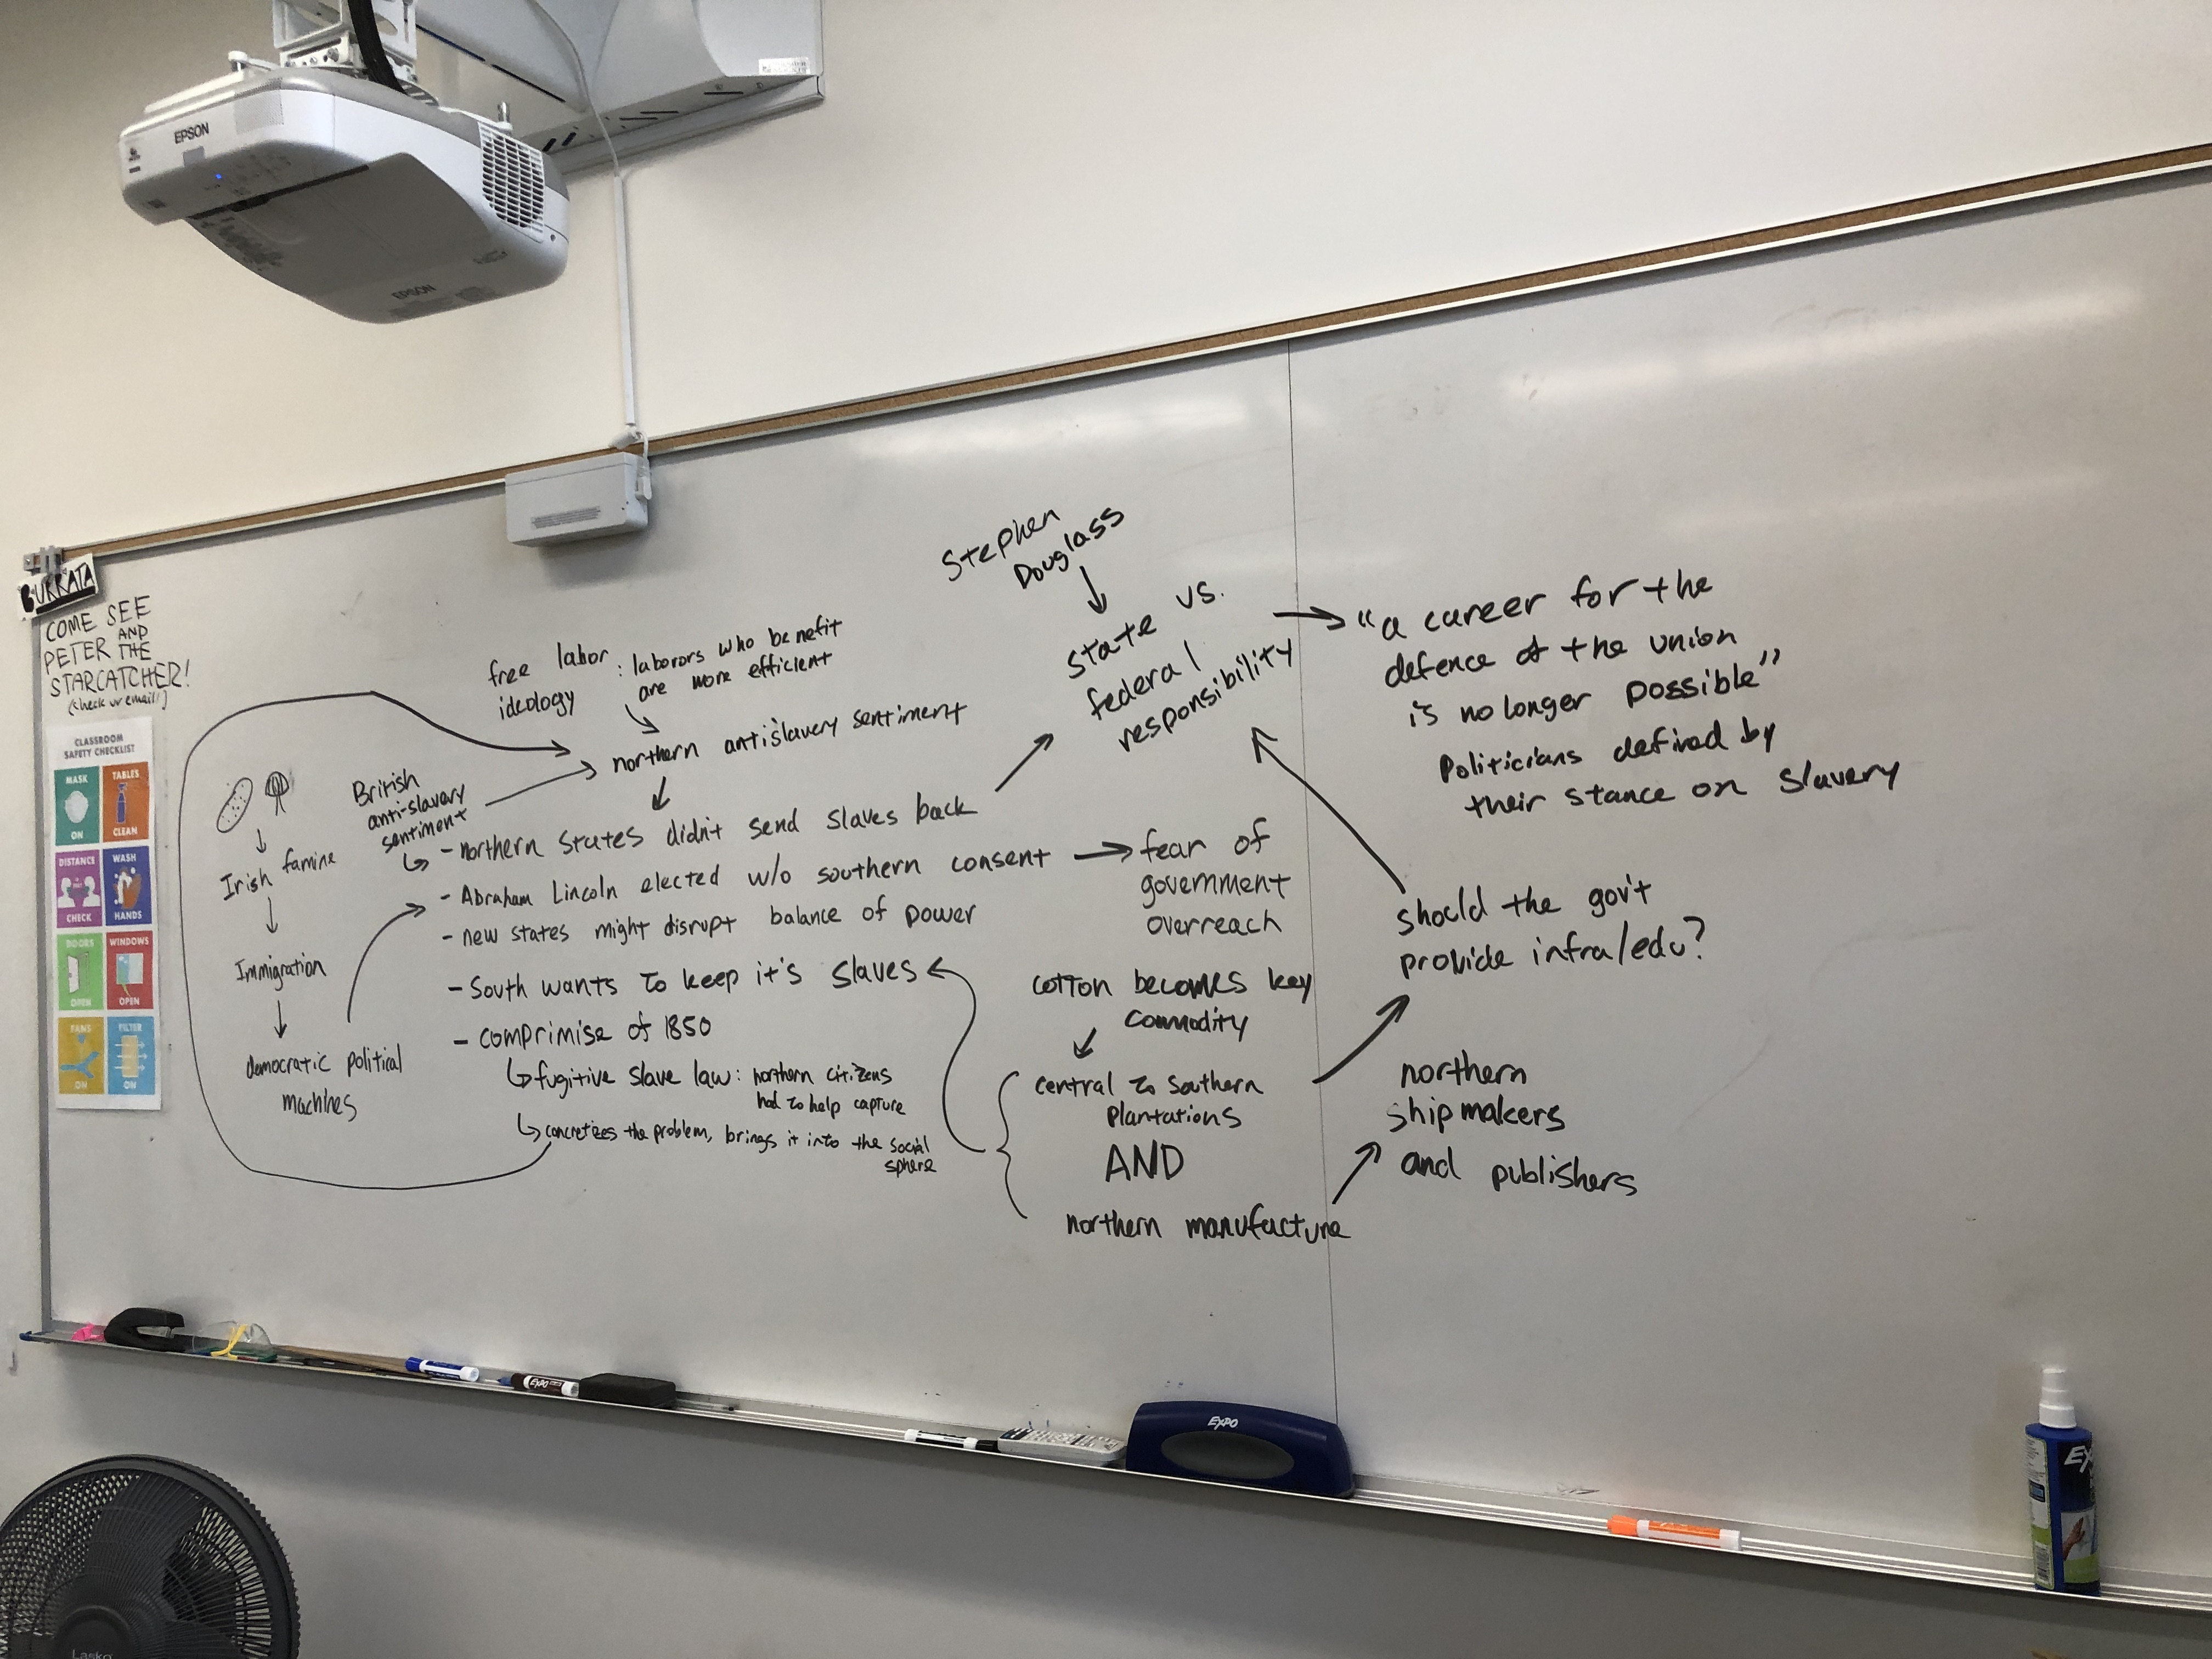 EPSON
EPSON
BURRATA
COME SEE
PETER AND
THE
STARCATCHER!
(check ur email!)
CLASSROOM
SAFETY CHECKLIST
MASK
ON
TABLES
CLEAN
DISTANCE
CHECK
WASH
HANDS
DOORS
OPEN
WINDOWS
OPEN
FANS
ON
FILTER
ON
Irish famine
Immigration
democratic political
machines
British
anti-slavery
sentiment
free labor : laborors who benefit
ideology are more efficient
northern antislavery sentiment
- northern states didn't send slaves back
- Abraham Lincoln elected w/o southern consent
- new states might disrupt balance of power
- South wants to keep it's slaves
- comprimise of 1850
fugitive slave law: northern citizens
had to help capture
concretizes the problem, brings it into the social
sphere
Stephen
Douglass
state vs.
federal
responsibility
"a career for the
defence of the union
is no longer possible"
Politicians defined by
their stance on slavery
fear of
government
overreach
cotton becomes key
commodity
central to southern
plantations
AND
northern manufacture
should the gov't
provide infra/edu?
northern
shipmakers
and publishers
EXPO
EXPO
Lasko